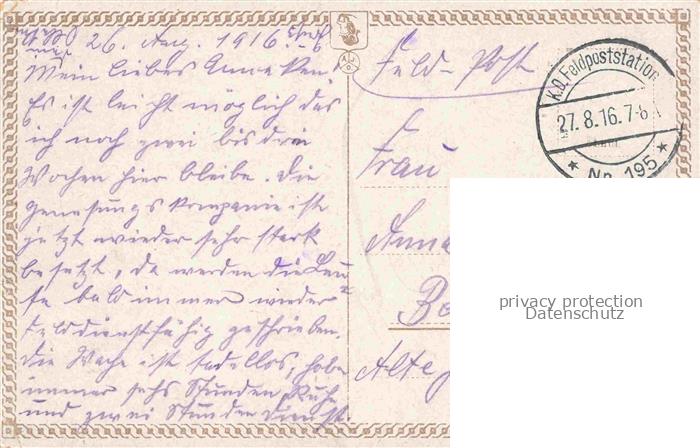 26. Aug. 1916
Mein liebes Annerken!
Es ist leicht möglich das
ich noch zwei bis drei
Wochen hier bleibe. Die
Genesungs Kompanie ist
jetzt wieder sehr stark
besetzt, da werden die Leu
te bald immer wieder
felddienstfähig geschrieben.
Die Wache ist tadellos, habe
immer sechs Stunden Ruhe
und zwei Stunden Dienst.
Feld-Post
K.D. Feldpoststation
27.8.16.7-8
* No 195 *
Frau
Anna
Be
Alte
privacy protection
Datenschutz